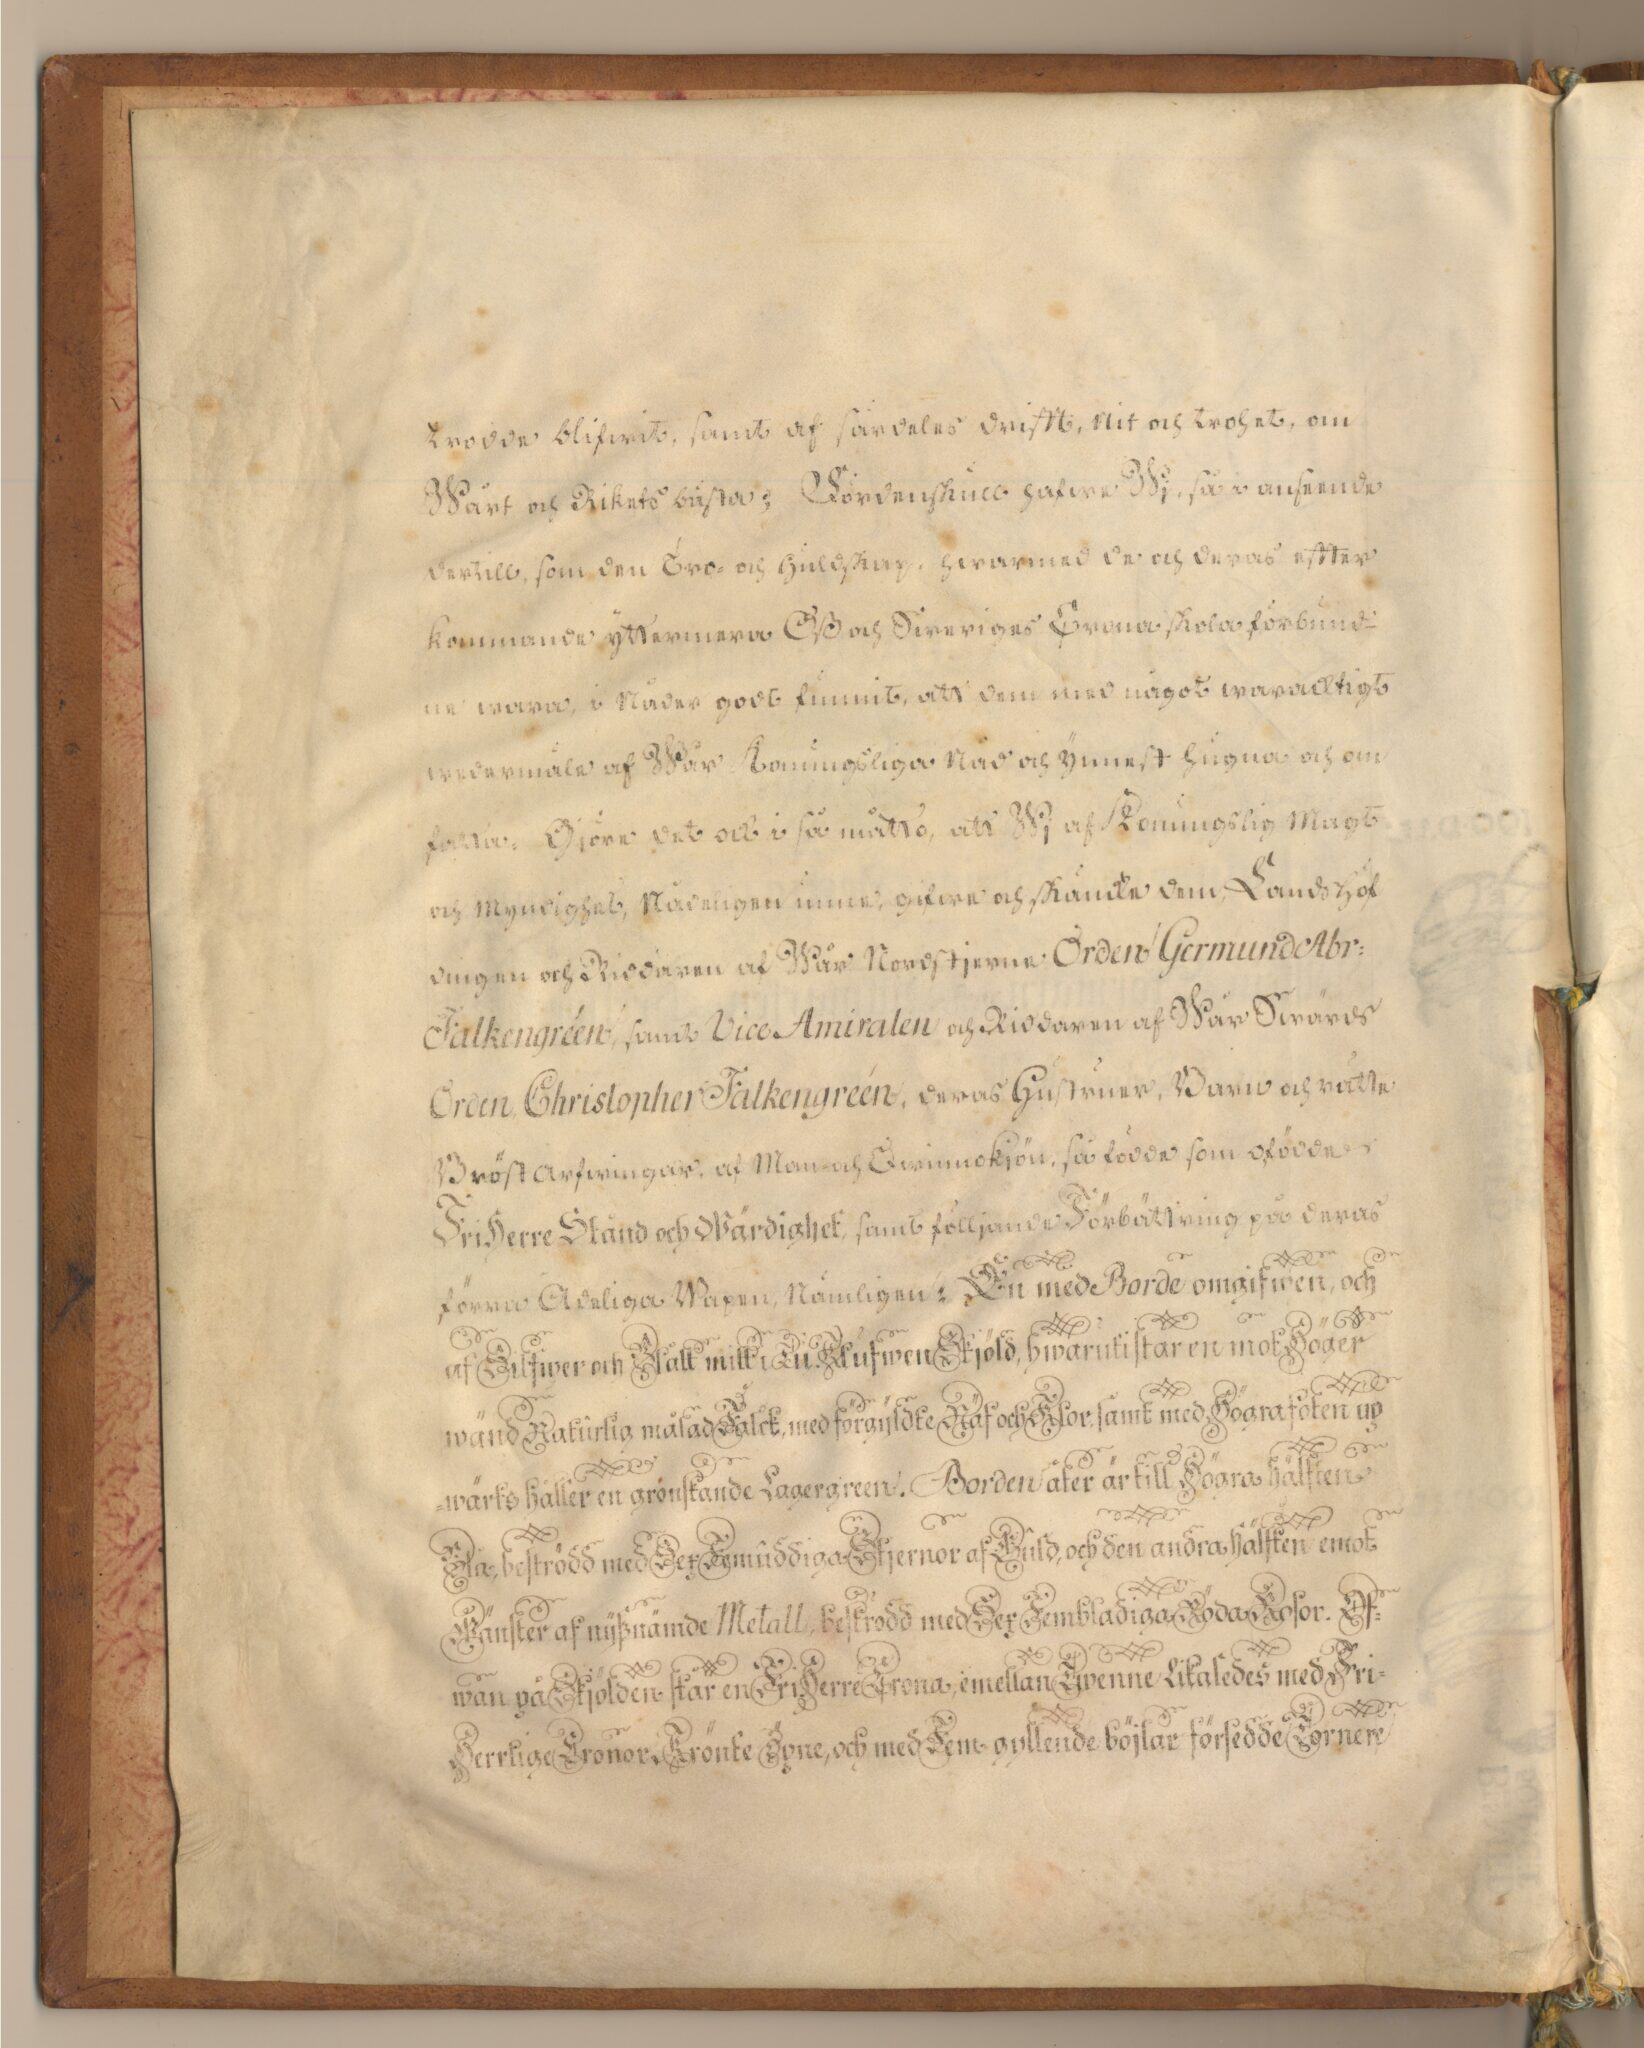 trodde blifwit, samt af särdeles drifft, Nit och trohet, om
Wårt och Rikets bästa; Fördenskull hafwe Wj, så i anseende
dertill, som den Tro- och Huldskap, hwarmed de och deras effter
kommande yttermera Oß och Sweriges Crona skola förbund-
ne wara, i Nåder godt funnit, att dem med något waracktigt
wedermäle af Wår Konungsliga Nåd och Ynnest hugna och om
fatta. Giöre det ock i så måtto, att Wj af Konungslig Magt
och Myndighet, Nådeligen unne, gifwe och skäncke dem, Lands Höf
dingen och Riddaren af Wår Nordstjerne Orden Germund Abr:
Falkengréen, samt Vice Amiralen och Riddaren af Wår Swärds
Orden, Christopher Falkengréen, deras Hustruer, Barn och rätte
Bröst Arfwingar, af Man- och Qwinnokjön, så födde som ofödde
FriHerre Stånd och Wärdighet, samt följjande Förbättring på deras
förra Adeliga Wapen, Nämligen: En med Borde omgifwen, och
af Silfwer och Blått mitt i Tu Klufwen Skjöld, hwaruti står en mot Höger
wänd Naturlig målad Falck, med förgyldte Näf och Klor, samt med Högra foten up
-wärts håller en grönskande Lagergreen. Borden åter är till Högra hälften
Blå, beströdd med Sex Femuddiga Stjernor af Guld, och den andra hälften emot
Wänster af nyßnämde Metall, beströdd med Sex Fembladiga Röda Rosor. Of-
wan på Skjölden står en FriHerre Crona, emellan Twenne likaledes med Fri-
Herrlige Cronor Krönte Öpne, och med Fem gyllende böjlar försedde Tornere